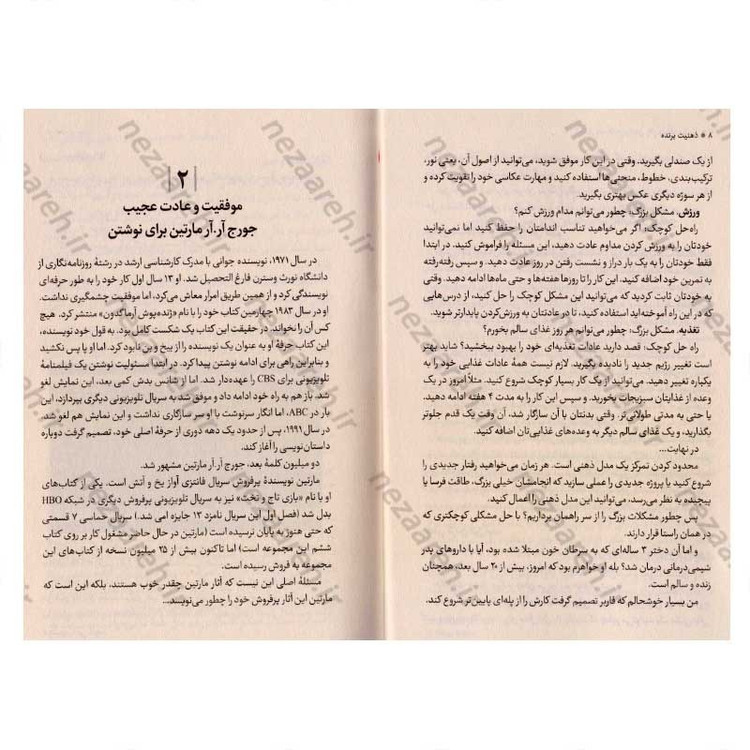 ۸ * ذهنیت برنده
از یک صندلی بگیرید. وقتی در این کار موفق شوید، می‌توانید از اصول آن، یعنی نور،
ترکیب‌بندی، خطوط، منحنی‌ها استفاده کنید و مهارت عکاسی خود را تقویت کرده و
از هر سوژه دیگری عکس بهتری بگیرید.
ورزش. مشکل بزرگ: چطور می‌توانم مدام ورزش کنم؟
راه‌حل کوچک: اگر می‌خواهید تناسب اندامتان را حفظ کنید اما نمی‌توانید
خودتان را به ورزش کردن مداوم عادت دهید، این مسئله را فراموش کنید. در ابتدا
فقط خودتان را به یک بار دراز و نشست رفتن در روز عادت دهید. و سپس رفته‌رفته
به تمرین خود اضافه کنید. این کار را تا روزها و هفته‌ها و حتی ماه‌ها ادامه دهید. وقتی
به خودتان ثابت کردید که می‌توانید این مشکل کوچک را حل کنید، از درس‌هایی
که در این راه آموخته‌اید استفاده کنید، تا در عادتتان به ورزش‌کردن پایدارتر شوید.
تغذیه. مشکل بزرگ: چطور می‌توانم هر روز غذای سالم بخورم؟
راه‌حل کوچک: قصد دارید عادات تغذیه‌ای خود را بهبود ببخشید؟ شاید بهتر
است تغییر رژیم جدید را نادیده بگیرید. لازم نیست همهٔ عادات غذایی خود را
یکباره تغییر دهید. می‌توانید از یک کار بسیار کوچک شروع کنید. مثلاً امروز در یک
وعده از غذایتان سبزیجات بخورید. و سپس این کار را به مدت ۲ هفته ادامه دهید.
یا حتی به مدتی طولانی‌تر. وقتی بدنتان با آن سازگار شد، آن وقت یک قدم جلوتر
بگذارید، و یک غذای سالم دیگر به وعده‌های غذایی‌تان اضافه کنید.
در نهایت...
محدود کردن تمرکز یک مدل ذهنی است. هر زمان می‌خواهید رفتار جدیدی را
شروع کنید یا پروژه جدیدی را عملی سازید که انجامشان خیلی بزرگ، طاقت فرسا یا
پیچیده به نظر می‌رسد، می‌توانید این مدل ذهنی را اعمال کنید.
پس چطور مشکلات بزرگ را از سر راهمان برداریم؟ با حل مشکلی کوچکتری که
در همان راستا قرار دارند.
و اما آن دختر ۳ ساله‌ای که به سرطان خون مبتلا شده بود، آیا با داروهای پدر
شیمی‌درمانی درمان شد؟ بله او خواهرم بود که امروز، بیش از ۲۰ سال بعد، همچنان
زنده و سالم است.
من بسیار خوشحالم که فاربر تصمیم گرفت کارش را از پله‌ای پایین‌تر شروع کند.
۲
موفقیت و عادت عجیب
جورج آر.آر مارتین برای نوشتن
در سال ۱۹۷۱، نویسنده جوانی با مدرک کارشناسی ارشد در رشتهٔ روزنامه‌نگاری از
دانشگاه نورث وسترن فارغ التحصیل شد. او ۱۳ سال اول کار خود را به طور حرفه‌ای
نویسندگی کرد و از همین طریق امرار معاش می‌کرد، اما موفقیت چشمگیری نداشت.
او در سال ۱۹۸۳ چهارمین کتاب خود را با نام «ژنده‌پوش آرماگدون» منتشر کرد. هیچ
کس آن را نخواند. در حقیقت این کتاب یک شکست کامل بود. به قول خود نویسنده،
این کتاب حرفهٔ او به عنوان یک نویسنده را از بیخ و بن نابود کرد. اما او پا پس نکشید
و بنابراین راهی برای ادامه نوشتن پیدا کرد. در ابتدا مسئولیت نوشتن یک فیلمنامهٔ
تلویزیونی برای CBS را عهده‌دار شد. اما از شانس بدش کمی بعد، این نمایش لغو
شد. باز هم به راه خود ادامه داد و موفق شد به سریال تلویزیونی دیگری بپردازد، این
بار در ABC، اما انگار سرنوشت با او سر سازگاری نداشت و این نمایش هم لغو شد.
در سال ۱۹۹۱، پس از حدود یک دهه دوری از حرفهٔ اصلی خود، تصمیم گرفت دوباره
داستان‌نویسی را آغاز کند.
دو میلیون کلمهٔ بعد، جورج آر.آر مارتین مشهور شد.
مارتین نویسندهٔ پرفروش سریال فانتزی آواز یخ و آتش است. یکی از کتاب‌های
او با نام «بازی تاج و تخت» نیز به سریال تلویزیونی پرفروش دیگری در شبکه HBO
بدل شد (فصل اول این سریال نامزد ۱۳ جایزه امی شد.) سریال حماسی ۷ قسمتی
که حتی هنوز به پایان نرسیده است (مارتین در حال حاضر مشغول کار بر روی کتاب
ششم این مجموعه است) اما تاکنون بیش از ۲۵ میلیون نسخه از کتاب‌های این
مجموعه به فروش رسیده است.
مسئلهٔ اصلی این نیست که آثار مارتین چقدر خوب هستند، بلکه این است که
مارتین این آثار پرفروش خود را چطور می‌نویسد...
nezaareh.ir